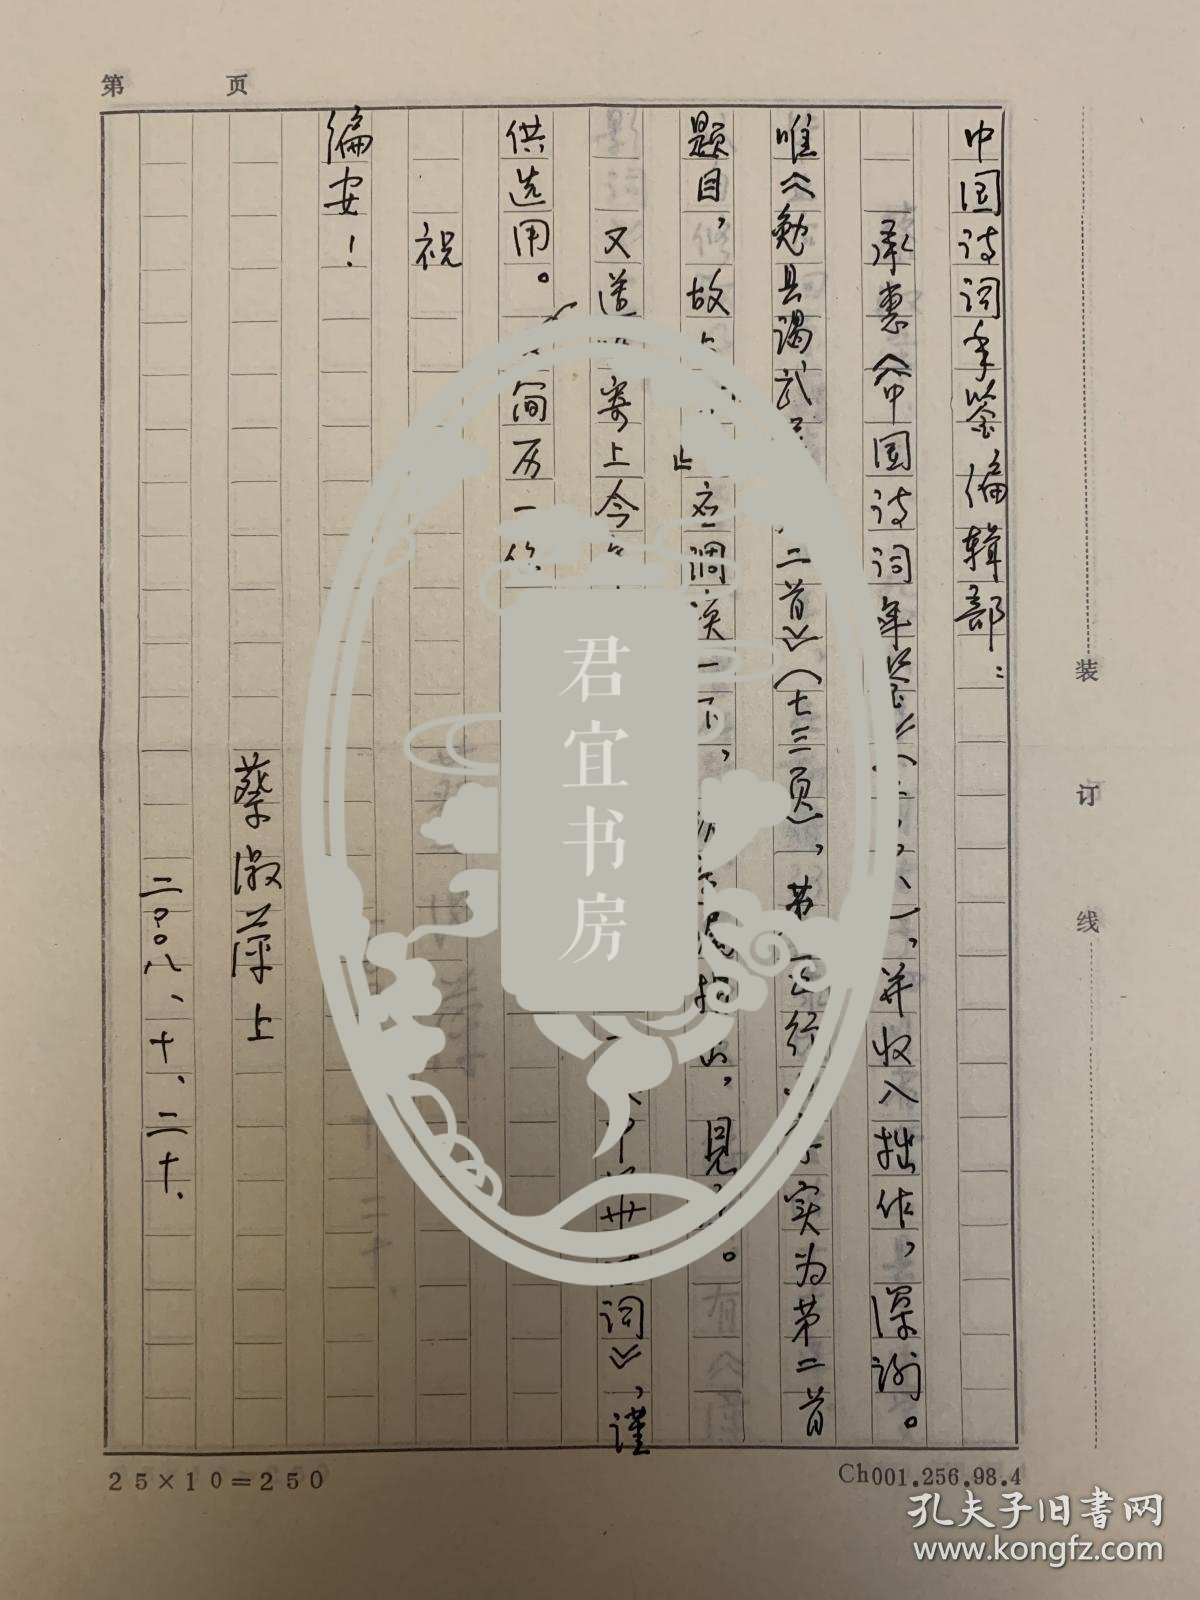 第 页
中国诗词年鉴编辑部：
承惠《中国诗词年鉴》，并收入拙作，深谢。
唯《勉县谒武二首》（七三页），第实为第二首
题目，故应调换一下，指出，见。
又遵寄上今词》，谨
供选用。简历一
祝
编安！
蔡淑萍上
二〇〇八、十、二十、
装 订 线
25×10=250
Ch001.256.98.4
君宜书房
孔夫子旧书网
www.kongfz.com